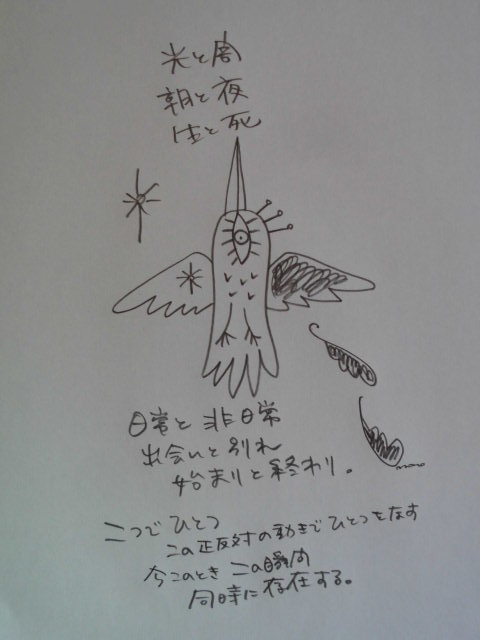 光と闇
朝と夜
生と死
日常と非日常
出会いと別れ
始まりと終わり。
二つでひとつ
この正反対の動きでひとつをなす
今このとき この瞬間
同時に存在する。
momo